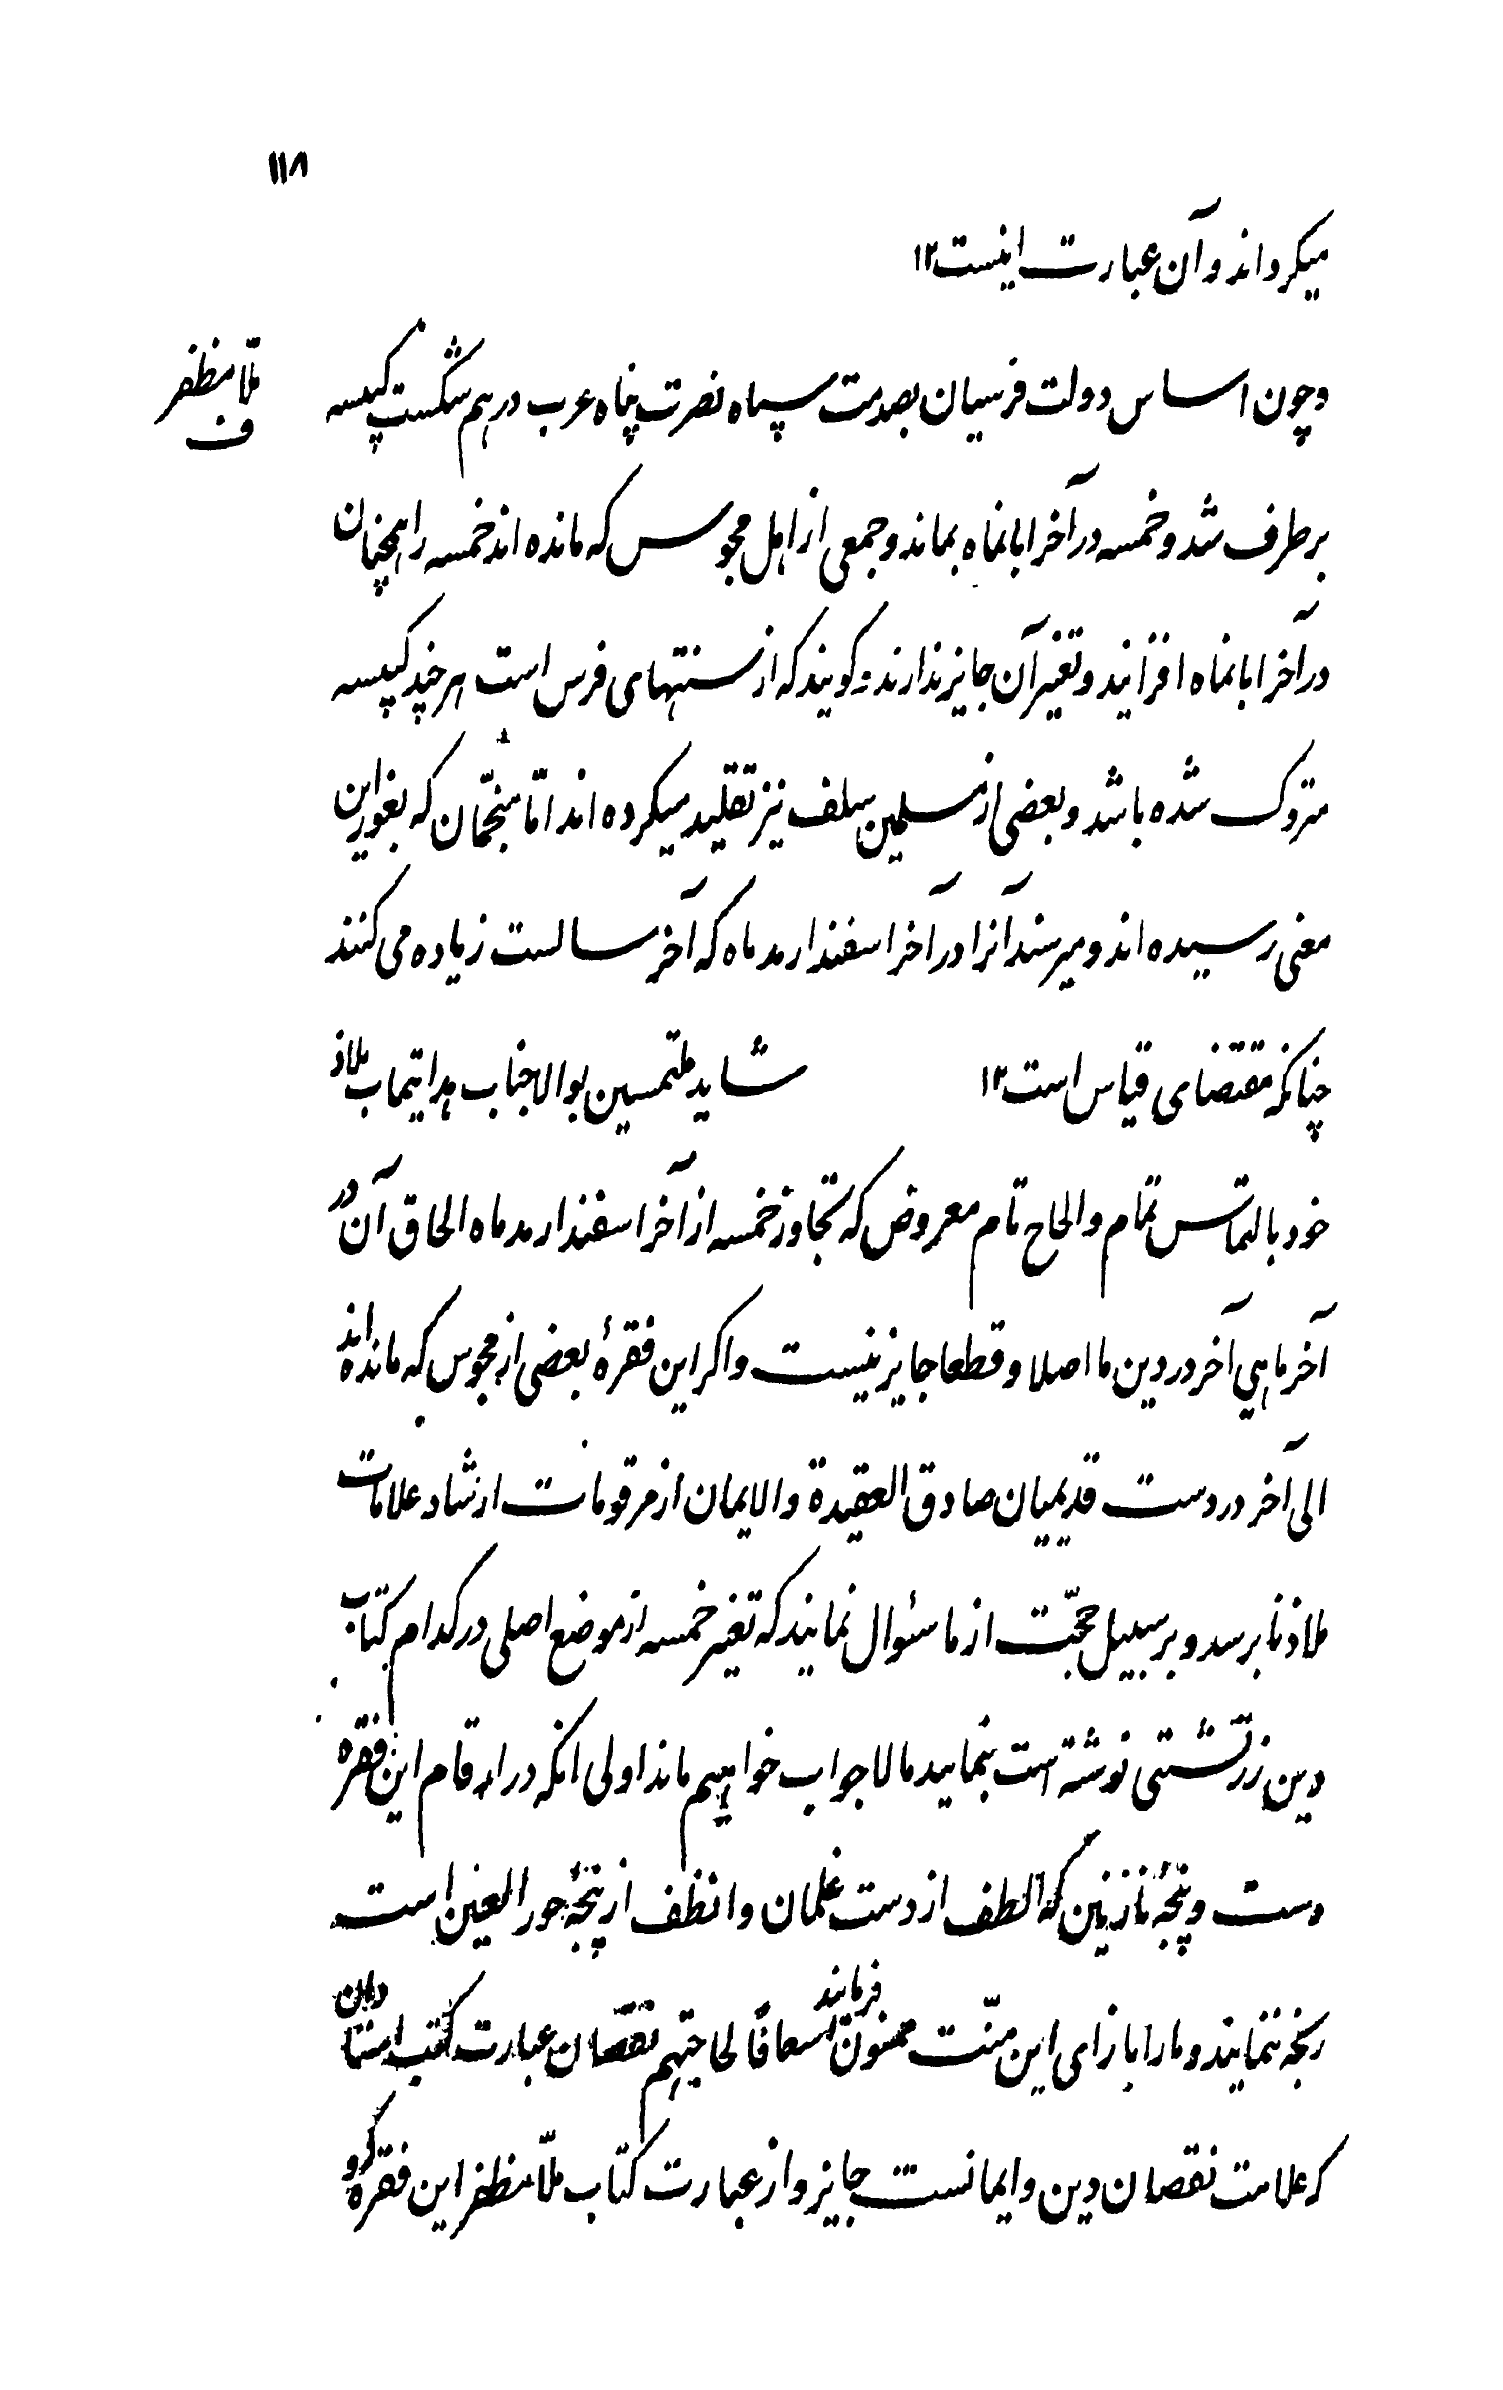 ۱۱۸
میکرداند و آن عبارت اینست ۱۲
ملا مظفر
ف
و چون اساس دولت فرسیان بصدمت سپاه نصرت پناه عرب در هم شکست کبیسه
بر طرف شد و خمسه در آخر ابانماه بماند و جمعی از اهل مجوس که مانده اند خمسه را همچنان
در آخر ابانماه افزایند و تغیر آن جایز ندارند و کویند که از سنتهای فرس است هر چند کبیسه
متروک شده باشد و بعضی از مسلمین سلف نیز تقلید میکرده اند امّا منجّمان که بغور این
معنی رسیده اند و میرسند آنرا در آخر اسفندارمد ماه که آخر سالست زیاده می کنند
چنانکه مقتضای قیاس است ۱۲ شاید ملتمسین بوالاجناب هدایتماب ملاذ
خود بالتماس تمام و الحاح تام معروض که تجاوز خمسه از آخر اسفندارمد ماه الحاق آن در
آخر ماهی آخر در دین ما اصلا و قطعا جایز نیست و اکر این فقرهٔ بعضی از مجوس که مانده اند
الی آخر در دست قدیمیان صادق العقیدة والایمان از مرقومات ارشاد علامات
ملاذنا برسد و بر سبیل حجّت از ما سئوال نمایند که تغیر خمسه از موضع اصلی در کدام کتاب
دین زرتشتی نوشته است بنمایید ما لاجواب خواهیم ماند اولی انکه در ارقام این فقره
دست و پنجهٔ نازنین که الطف از دست غلمان و انظف از پنجهٔ حور العین است
رنجه ننمایند و ما را بازای این منّت ممنون فرمایند اسعافا لحاجتهم نقصان عبارت کتب استادان
که علامت نقصان دین و ایمانست جایز و از عبارت کتاب ملّا مظفر این فقره کرو